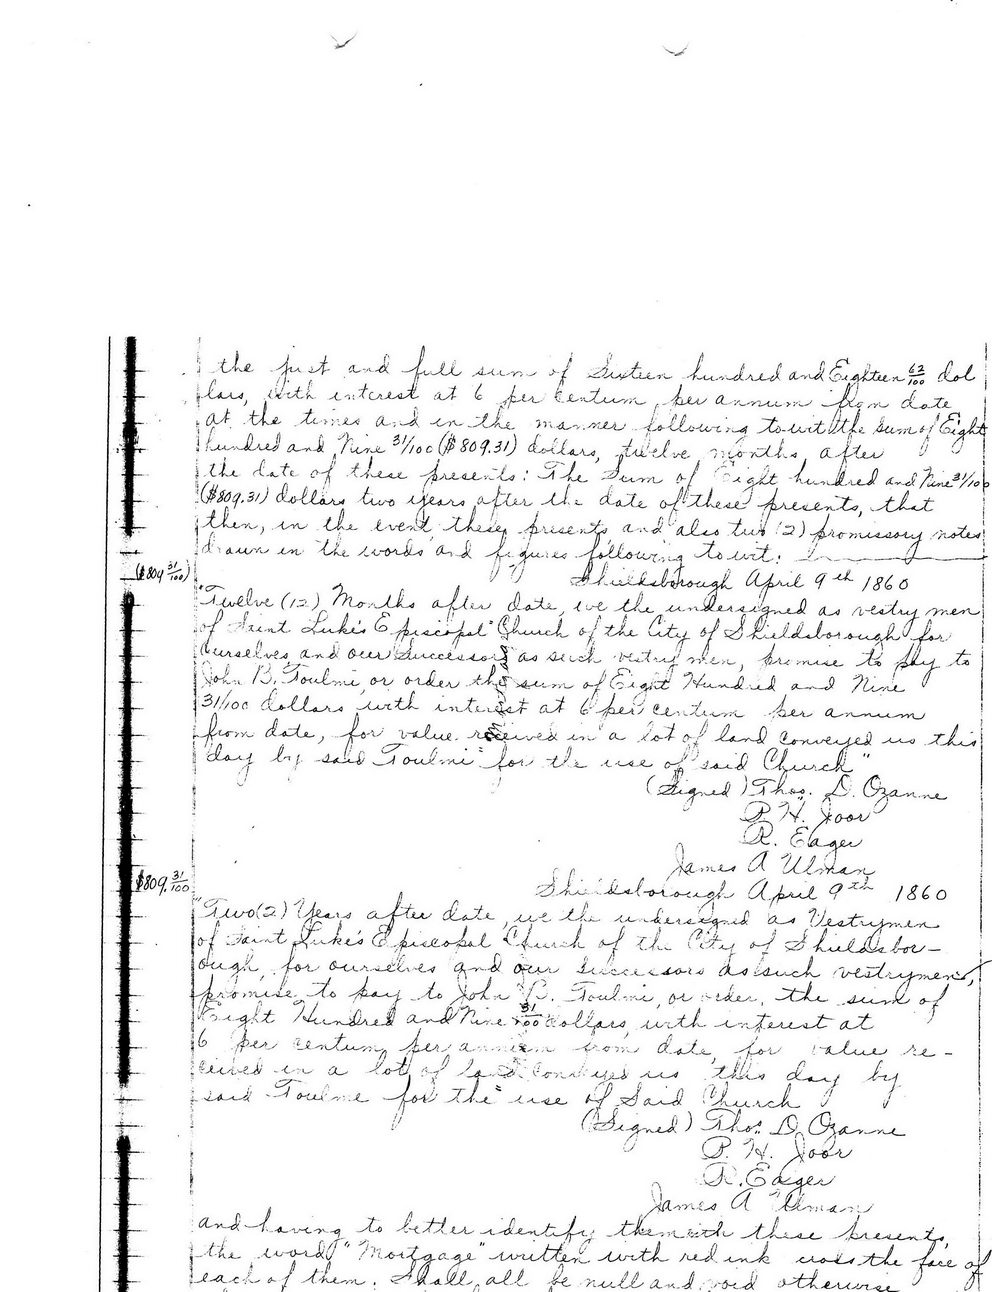 the just and full sum of Sixteen hundred and Eighteen 62/100 dol
lars, with interest at 6 per centum per annum from date
at the times and in the manner following to wit the sum of Eight
hundred and Nine 31/100 ($809.31) dollars, twelve months after
the date of these presents: The Sum of Eight hundred and Nine 31/100
($809.31) dollars two years after the date of these presents, that
then, in the event these presents and also two (2) promissory notes
drawn in the words and figures following to wit:
($809 31/100)
Shieldsborough April 9th 1860
"Twelve (12) Months after date, we the undersigned as vestry men
of Saint Luke's Episcopal Church of the City of Shieldsborough for
ourselves and our Successors as such vestry men, promise to pay to
John B. Toulmi, or order the sum of Eight Hundred and Nine
31/100 dollars with interest at 6 per centum per annum
from date, for value received in a lot of land conveyed us this
day by said Toulmi "for the use of said Church"
Mortgage
(Signed) Thos. D. Ozanne
P. H. Joor
R. Eager
James A Ulman
$809. 31/100
Shieldsborough April 9th 1860
"Two (2) Years after date, we the undersigned as Vestrymen
of Saint Luke's Episcopal Church of the City of Shieldsbor-
ough, for ourselves and our Successors as such vestrymen,
promise to pay to John B. Toulmi, or order, the sum of
Eight Hundred and Nine 31/100 dollars, with interest at
6 per centum per annum from date, for value re-
ceived in a lot of land conveyed us this day by
said Toulme for the "use of Said Church
(Signed) Thos. D. Ozanne
P. H. Joor
R. Eager
James A Ulman
and having to better identify them with these presents,
the word "Mortgage" written with red ink cross the face of
each of them. Shall all be null and void otherwise